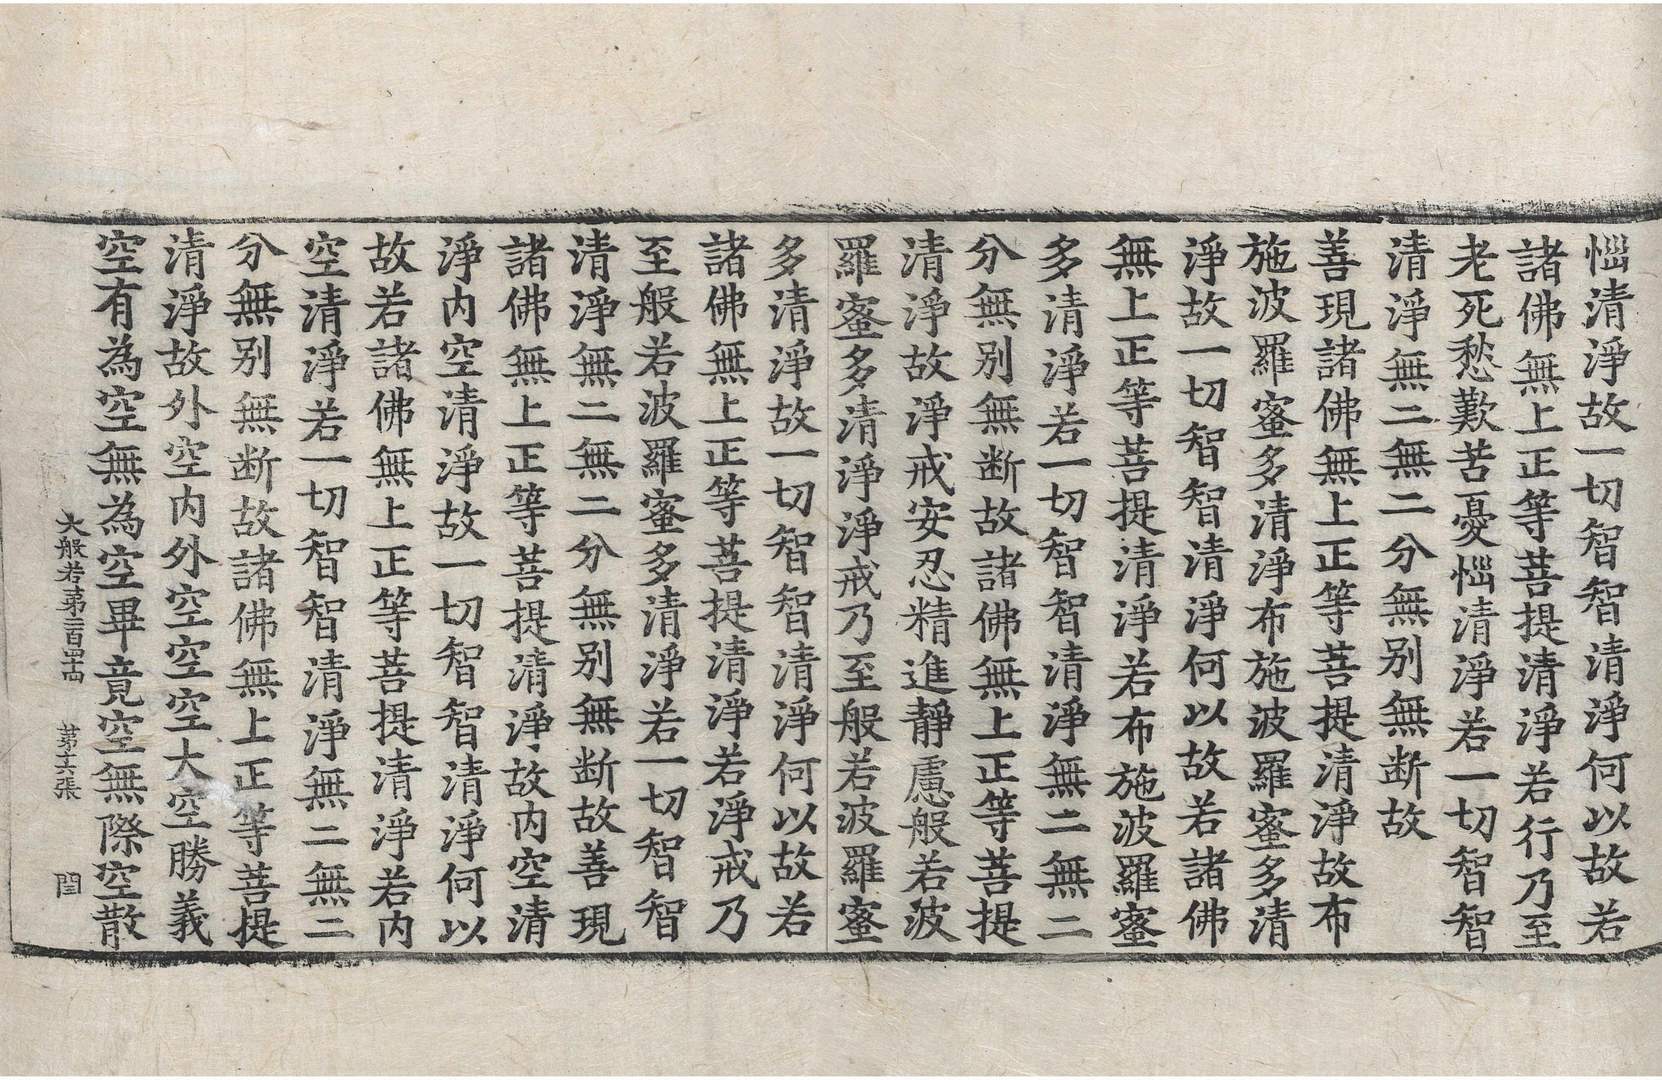 惱清淨故一切智智清淨何以故若
諸佛無上正等菩提清淨若行乃至
老死愁歎苦憂惱清淨若一切智智
清淨無二無二分無別無斷故
善現諸佛無上正等菩提清淨故布
施波羅蜜多清淨布施波羅蜜多清
淨故一切智智清淨何以故若諸佛
無上正等菩提清淨若布施波羅蜜
多清淨若一切智智清淨無二無二
分無別無断故諸佛無上正等菩提
清淨故淨戒安忍精進靜慮般若波
羅蜜多清淨淨戒乃至般若波羅蜜
多清淨故一切智智清淨何以故若
諸佛無上正等菩提清淨若淨戒乃
至般若波羅蜜多清淨若一切智智
清淨無二無二分無别無断故善現
諸佛無上正等菩提清淨故内空清
淨内空清淨故一切智智清淨何以
故若諸佛無上正等菩提清淨若内
空清淨若一切智智清淨無二無二
分無别無断故諸佛無上正等菩提
清淨故外空内外空空空大空勝義
空有為空無為空畢竟空無際空散
大般若第二百四十四 第十六張 閏